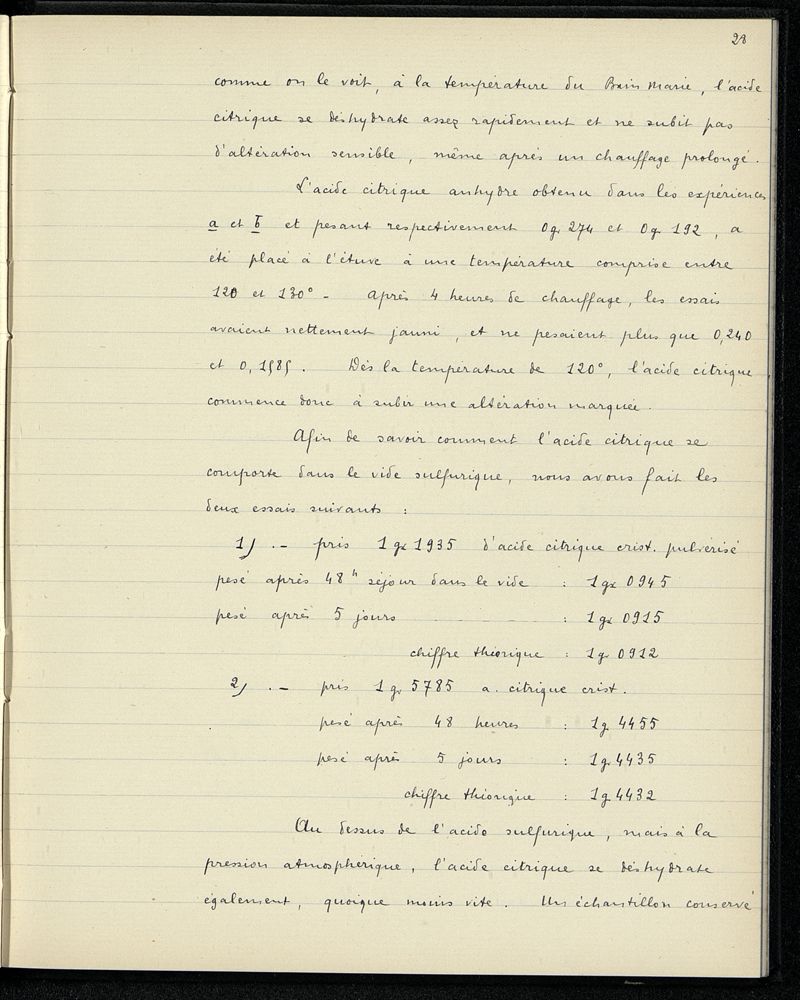 28
comme on le voit, à la température du Bain Marie, l'acide
citrique se déshydrate assez rapidement et ne subit pas
d'altération sensible, même après un chauffage prolongé.
L'acide citrique anhydre obtenu dans les expériences
a et b et pesant respectivement 0g, 274 et 0g 192, a
été placé à l'étuve à une température comprise entre
120 et 130° - Après 4 heures de chauffage, les essais
avaient nettement jauni, et ne pesaient plus que 0,240
et 0,1585. Dès la température de 120°, l'acide citrique,
commence donc à subir une altération marquée.
Afin de savoir comment l'acide citrique se
comporte dans le vide sulfurique, nous avons fait les
deux essais suivants :
1) .- pris 1gr 1935 d'acide citrique crist. pulvérisé
pesé après 48h séjour dans le vide : 1gr 0945
pesé après 5 jours : 1gr 0915
chiffre théorique : 1g 0912
2) .- pris 1g, 5785 a. citrique crist.
pesé après 48 heures : 1g 4455
pesé après 5 jours : 1g 4435
chiffre théorique : 1g 4432
Au dessus de l'acide sulfurique, mais à la
pression atmosphérique, l'acide citrique se déshydrate
également, quoique moins vite. Un échantillon conservé